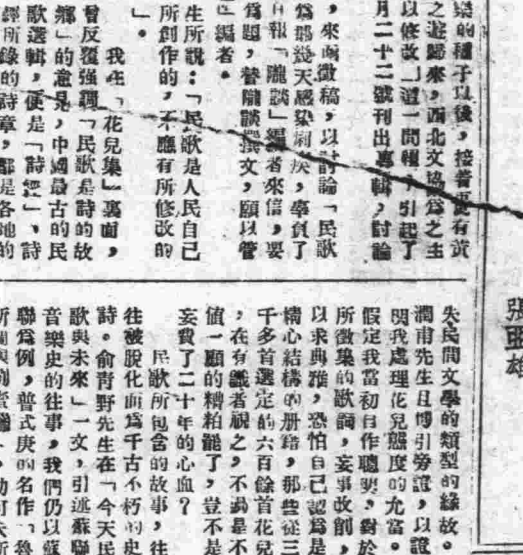 張亞雄
樂的種子以後,接着更有黃
之遊歸來,西北文協爲之主
以修改」這一問題,引起了
月二十二號刊出專輯,討論
,來函徵稿,以討論「民歌
爲那幾天感染痢疾,辜負了
日報「隴談」編者來信,要
爲題,替隴談撰文,願以管
」編者。
生所說:「民歌是人民自己
所創作的,不應有所修改的
」。
我在「花兒集」裏面,
曾反覆強調「民歌是詩的故
鄉」的意見,中國最古的民
歌選輯,便是「詩經」,詩
經所錄的詩章,都是各地的
失民間文學的類型的緣故。
潤甫先生且博引旁證,以證
明我處理花兒態度的允當。
假定我當初自作聰明,對於
所徵集的歌詞,妄事改創,
以求典雅,恐怕自己認爲是
精心結構的册籍,那些從三
千多首選定的六百餘首花兒
,在有識者視之,不過是不
值一顧的糟粕罷了,豈不是
妄費了二十年的心血?
民歌所包含的故事,往
往被脫化而爲千古不朽的史
詩。俞青野先生在「今天民
歌與未來」一文,引述蘇聯
音樂史的往事,我們仍以蘇
聯爲例,普式庚的名作「魯